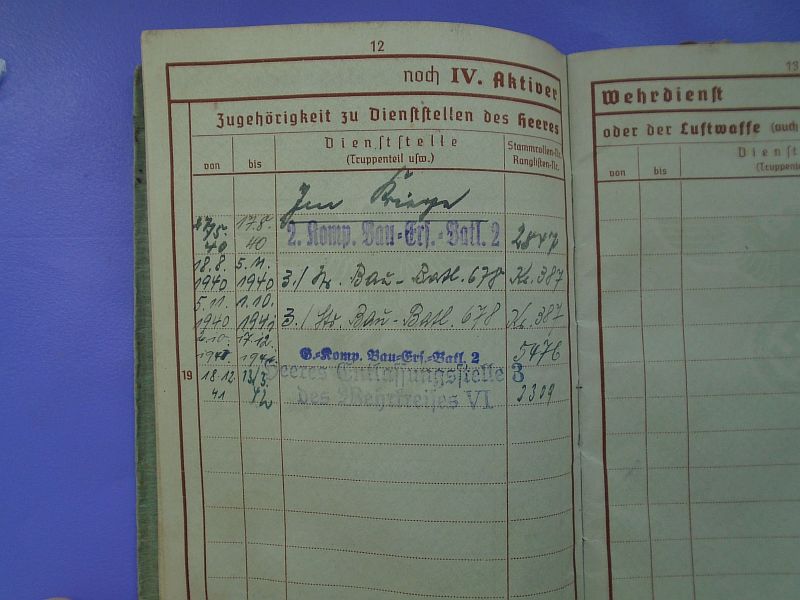 12
noch IV. Aktiver
Zugehörigkeit zu Dienststellen des Heeres
von
bis
Dienststelle
(Truppenteil usw.)
Stammrollen-Nr.
Ranglisten-Nr.
Im Kriege
27.5. 40
17.8. 40
2. Komp. Bau-Ers.-Batl. 2
2847
18.8. 1940
5.11. 1940
3./ Str. Bau-Batl. 678
Kr. 387
5.11. 1940
1.10. 1941
3./ Str. Bau-Batl. 678
Kr. 387
2.10.
17.12.
G.-Komp. Bau-Ers.-Batl. 2
5476
19
18.12. 41
42
Heeres Entlassungsstelle 3
des Wehrkreises VI.
2309
13
Wehrdienst
oder der Luftwaffe (auch
von
bis
Dienst
(Truppente